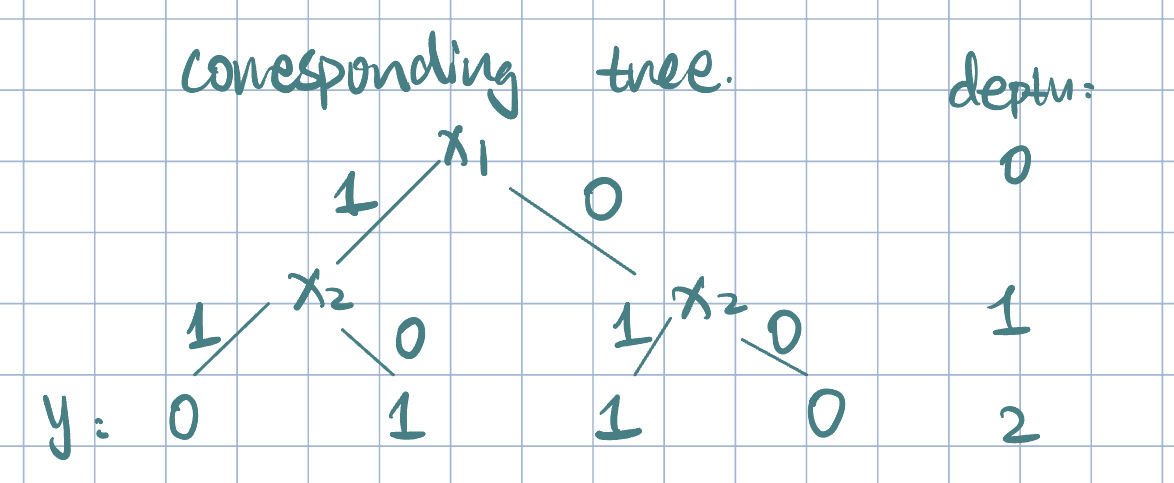 corresponding tree. depth:
x1 0
1 0
x2 x2 1
1 0 1 0
y: 0 1 1 0 2